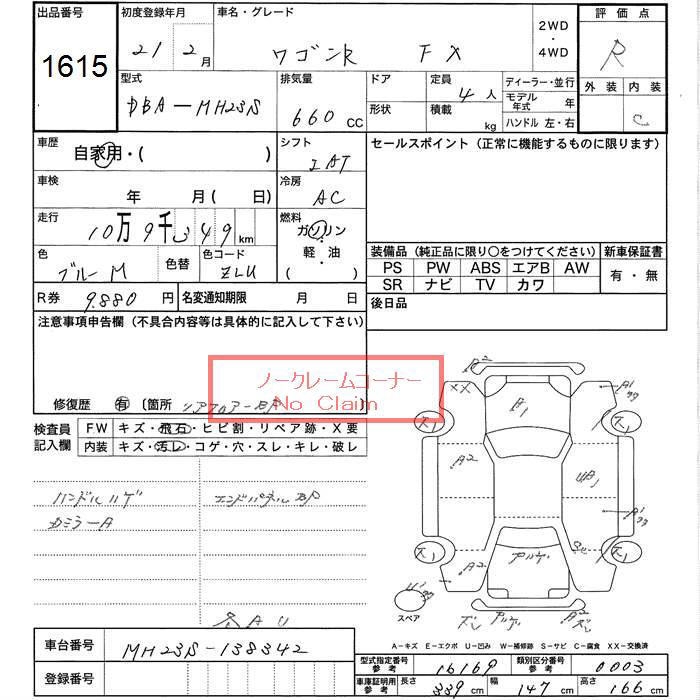 出品番号
1615
初度登録年月
21年 2月
車名・グレード
ワゴンR FX
2WD
・
4WD
評価点
R
外装 内装
C
型式
DBA-MH23S
排気量
660 CC
ドア
形状
定員
4人
積載
kg
ディーラー・並行
モデル年式 年
ハンドル 左・右
車歴
自家用・( )
シフト
IAT
セールスポイント (正常に機能するものに限ります)
車検
年 月 ( 日)
冷房
AC
走行
10万9千349 km
燃料
ガソリン
軽・油
( )
色
ブルーM
色替
色コード
ZLU
装備品 (純正品に限り○をつけてください)
PS PW ABS エアB AW
SR ナビ TV カワ
新車保証書
有・無
R券 9.880 円
名変通知期限 月 日
後日品
注意事項申告欄 (不具合内容等は具体的に記入して下さい)
ノークレームコーナー
No Claim
修復歴 有 〔箇所 リアフロアーBP
検査員記入欄
FW キズ・飛石・ヒビ割・リペア跡・X要
内装 キズ・汚レ・コゲ・穴・スレ・キレ・破レ
ハンドルハゲ
エンドパネルBP
Dミラー A
A2
XX
A1
B1
A2
UB1
A1
A2
スペア
A-キズ E-エクボ U-凹み W-補修跡 S-サビ C-腐食 XX-交換済
車台番号
MH23S-138342
登録番号
型式指定番号 参考
16169
類別区分番号 参考
0003
車庫証明用 参考
長さ 339 cm
幅 147 cm
高さ 166 cm